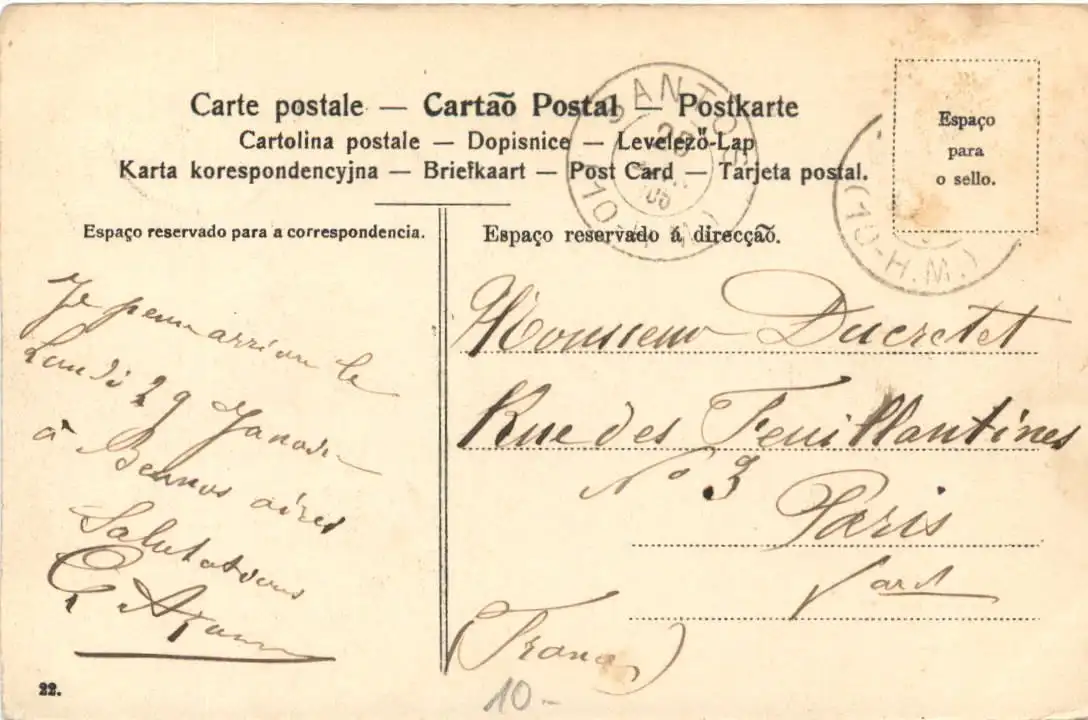 Carte postale — Cartaõ Postal — Postkarte
Cartolina postale — Dopisnice — Levelező-Lap
Karta korespondencyjna — Briefkaart — Post Card — Tarjeta postal.
SANTOS
(10-H.M.)
Espaço
para
o sello.
Espaço reservado para a correspondencia.
Je pense arriver le
Lundi 29 Janvier
à Buenos aires
Salutations
Espaço reservado á direcçaõ.
Monsieur Ducretet
Rue des Feuillantines
No 3
Paris
(France)
10-
22.